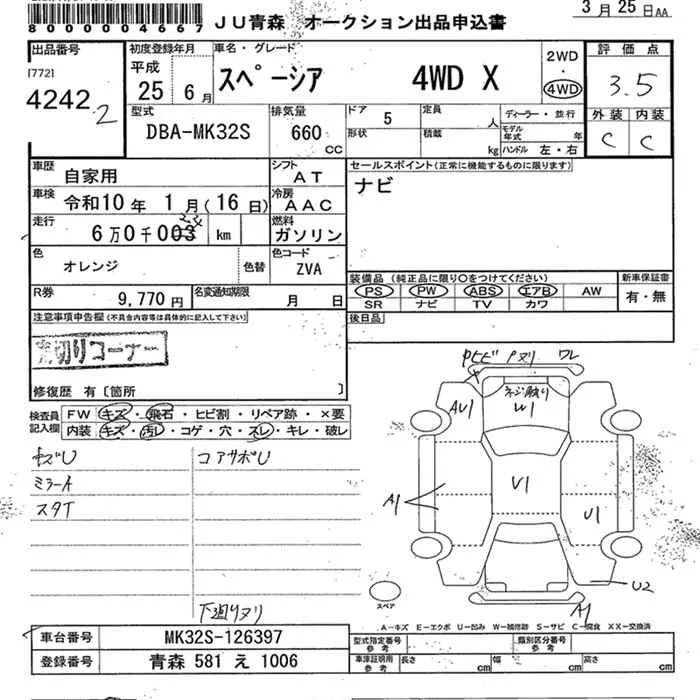 3 月 25 日 AA
80000004667
JU青森 オークション出品申込書
出品番号
[772]
4242 2
初度登録年月
平成
25 6月
車名・グレード
スペーシア 4WD X
2WD
・
4WD
評価点
3.5
型式
DBA-MK32S
排気量
660 CC
ドア 5
形状
定員 人
積載 kg
ディーラー・並行
モデル年式 年
ハンドル 左・右
外装 内装
C C
車歴
自家用
シフト
AT
セールスポイント(正常に機能するものに限ります)
ナビ
車検
令和10年 1月(16日)
冷房
AAC
走行
6万0千003 km
燃料
ガソリン
色
オレンジ
色替
色コード
ZVA
装備品(純正品に限り○をつけてください)
新車保証書
PS PW ABS エアB AW
SR ナビ TV カワ
有・無
R券
9,770円
名変通知期限
月 日
後日品
注意事項申告欄(不具合内容等は具体的に記入して下さい)
切りコーナー
修復歴 有〔箇所 〕
検査員記入欄
FW キズ・飛石・ヒビ割・リペア跡・×要
内装 キズ・汚レ・コゲ・穴・スレ・キレ・破レ
キズU
コアサポU
ミラーA
スタT
下廻りヌリ
Pヒビ Pヌリ ワレ
AU1
W1
A1
U1
U1
U2
A1
スペア
A-キズ E-エクボ U-凹み W-補修跡 S-サビ C-腐食 XX-交換済
車台番号
MK32S-126397
登録番号
青森 581 え 1006
型式指定番号
参考
類別区分番号
参考
車庫証明用
参考
長さ cm
幅 cm
高さ cm